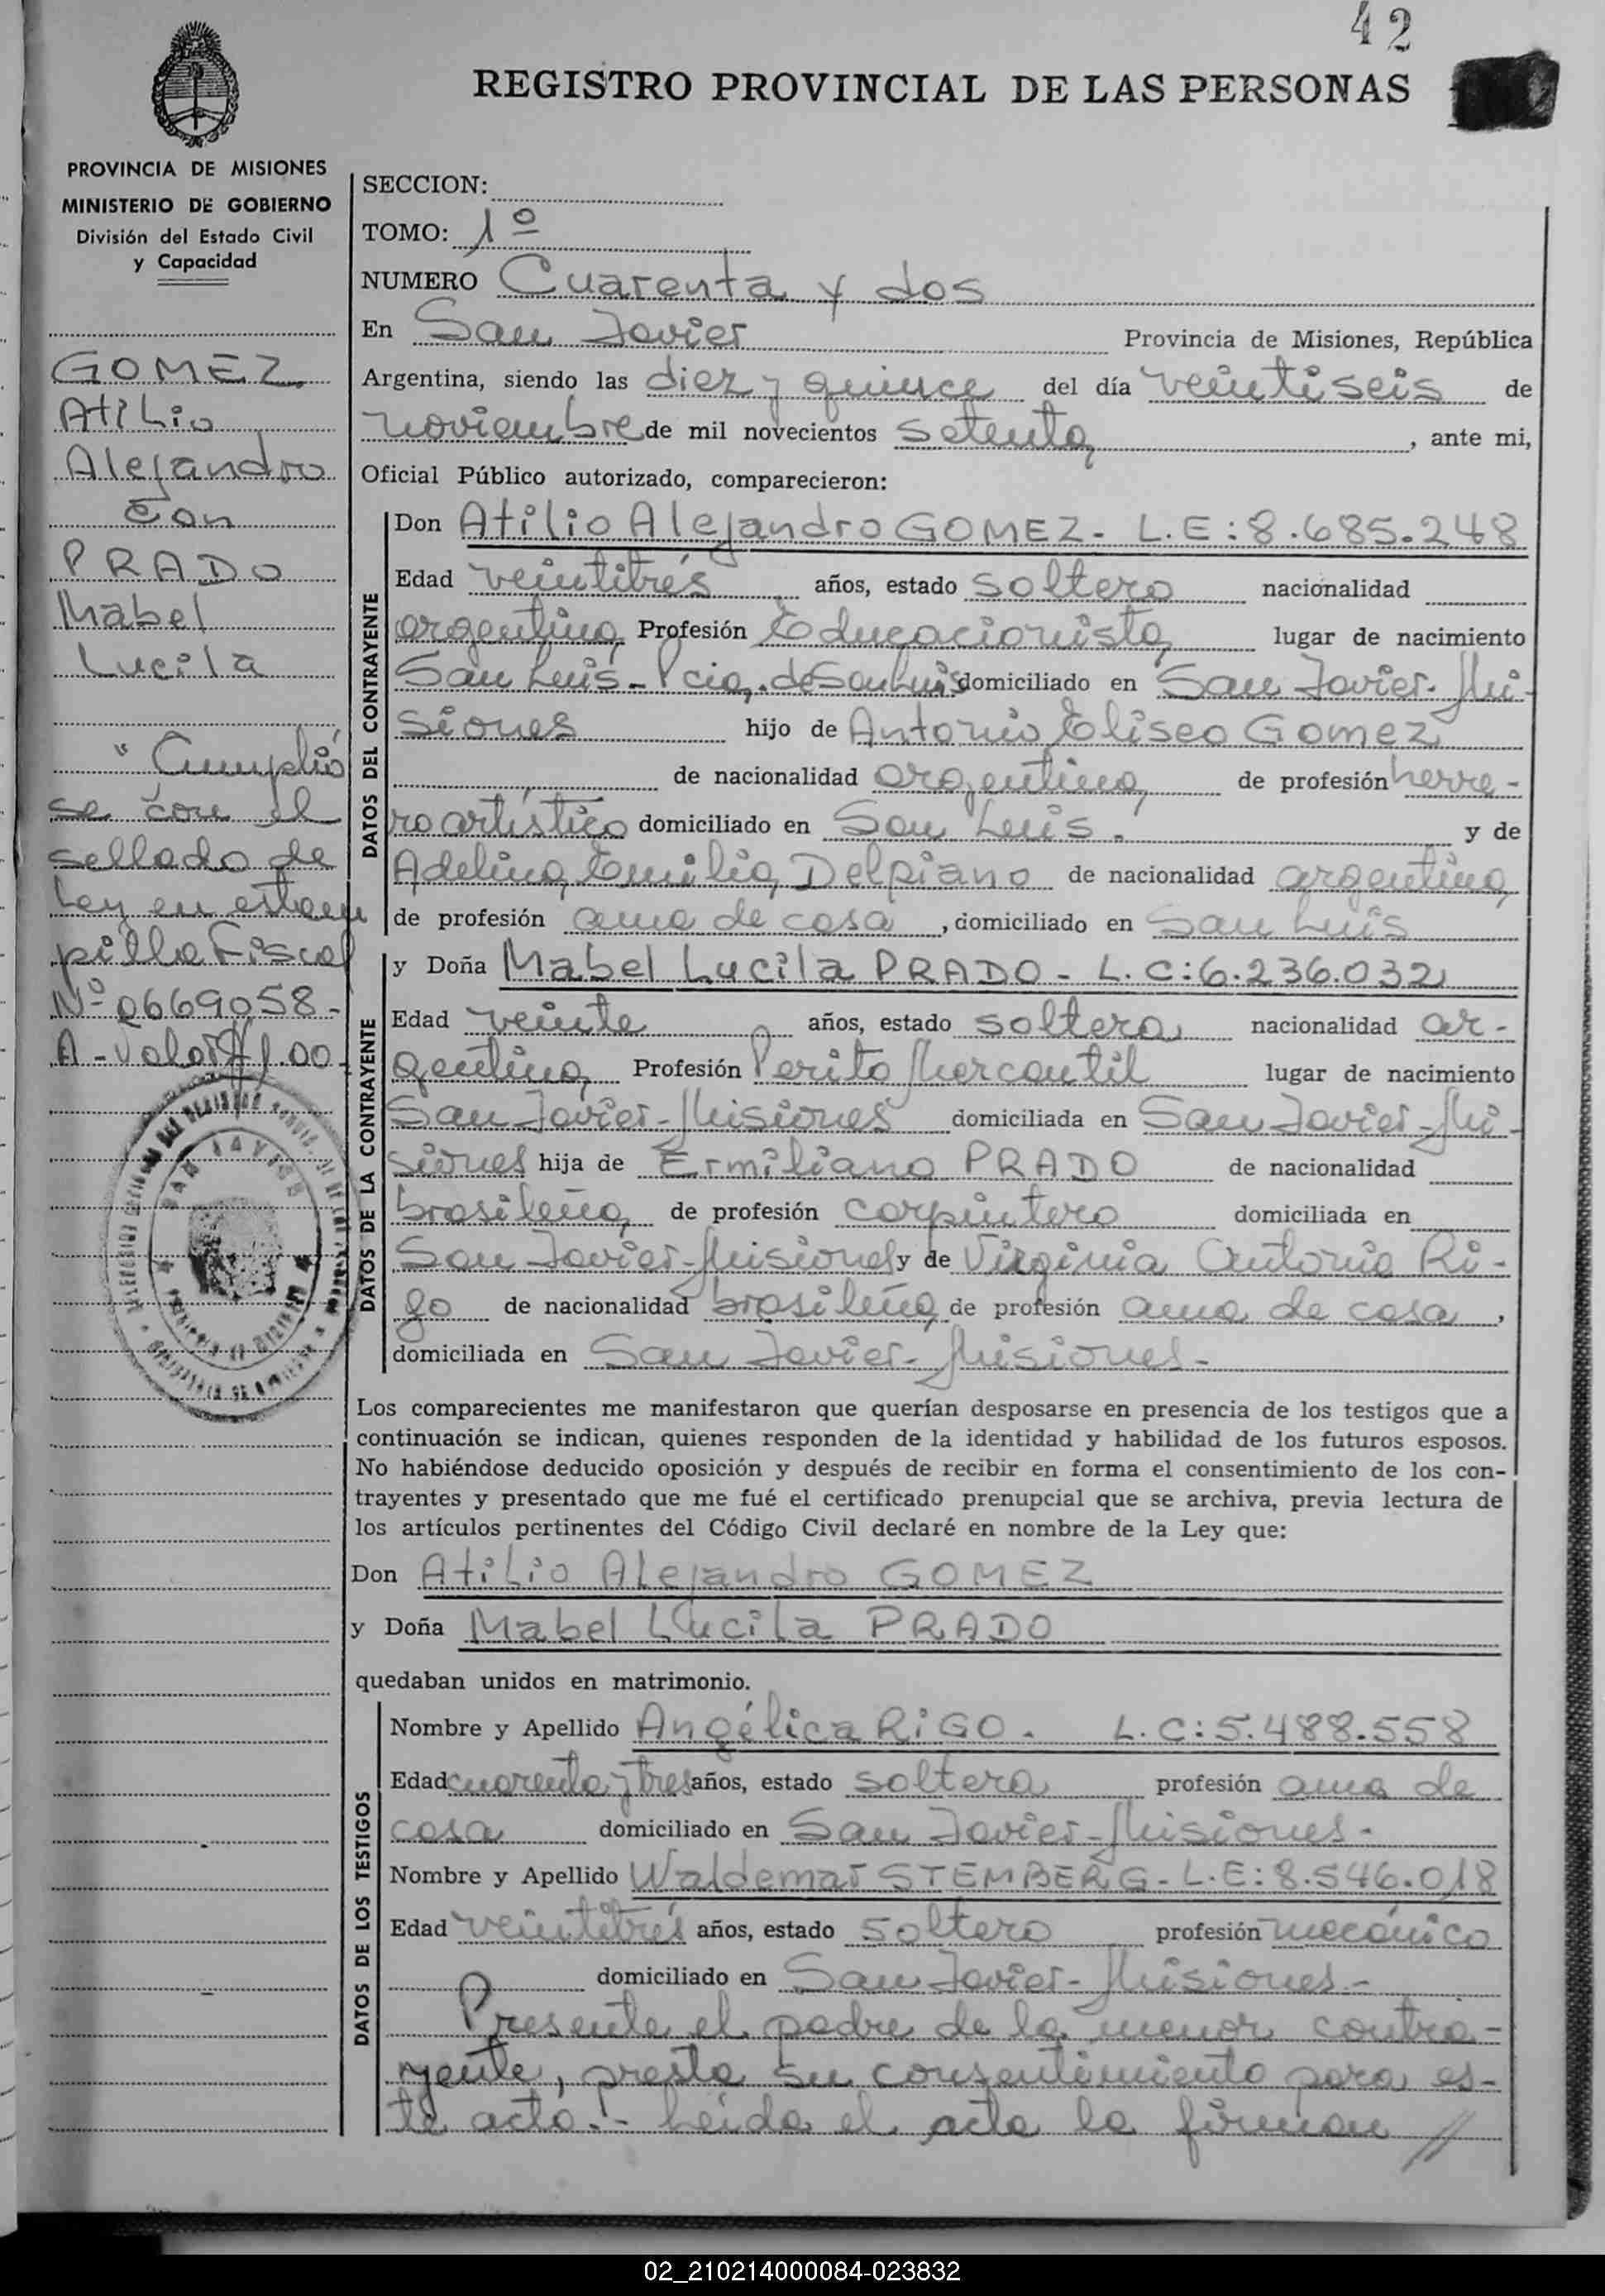 42
REGISTRO PROVINCIAL DE LAS PERSONAS
PROVINCIA DE MISIONES
MINISTERIO DE GOBIERNO
División del Estado Civil
y Capacidad
GOMEZ
Atilio
Alejandro
con
PRADO
Mabel
Lucila
"Cumplió
se con el
sellado de
Ley en estam
pilla Fiscal
Nº 0669058-
A-Valor $1.00-
SAN JAVIER
SECCION:
TOMO: 1º
NUMERO Cuarenta y dos
En San Javier Provincia de Misiones, República
Argentina, siendo las diez y quince del día veintiseis de
noviembre de mil novecientos setenta, ante mi,
Oficial Público autorizado, comparecieron:
DATOS DEL CONTRAYENTE
Don Atilio Alejandro GOMEZ- L.E:8.685.248
Edad veintitrés años, estado soltero nacionalidad
argentina Profesión Educacionista lugar de nacimiento
San Luis-Pcia.de San Luis domiciliado en San Javier-Mi-
siones hijo de Antonio Eliseo Gomez
de nacionalidad argentina de profesión herre-
ro artístico domiciliado en San Luis. y de
Adelina Emilia Delpiano de nacionalidad argentina
de profesión ama de casa, domiciliado en San Luis
DATOS DE LA CONTRAYENTE
y Doña Mabel Lucila PRADO- L.C:6.236.032
Edad veinte años, estado soltera nacionalidad ar-
gentina Profesión Perito Mercantil lugar de nacimiento
San Javier-Misiones domiciliada en San Javier-Mi-
siones hija de Ermiliano PRADO de nacionalidad
brasileña de profesión carpintero domiciliada en
San Javier-Misiones y de Virginia Antonia Ri-
go de nacionalidad brasileña de profesión ama de casa,
domiciliada en San Javier-Misiones-
Los comparecientes me manifestaron que querían desposarse en presencia de los testigos que a
continuación se indican, quienes responden de la identidad y habilidad de los futuros esposos.
No habiéndose deducido oposición y después de recibir en forma el consentimiento de los con-
trayentes y presentado que me fué el certificado prenupcial que se archiva, previa lectura de
los artículos pertinentes del Código Civil declaré en nombre de la Ley que:
Don Atilio Alejandro GOMEZ
y Doña Mabel Lucila PRADO
quedaban unidos en matrimonio.
DATOS DE LOS TESTIGOS
Nombre y Apellido Angélica RIGO. L.C:5.488.558
Edad cuarenta y tres años, estado soltera profesión ama de
casa domiciliado en San Javier-Misiones-
Nombre y Apellido Waldemar STEMBERG-L.E:8.546.018
Edad veintitrés años, estado soltero profesión mecánico
domiciliado en San Javier-Misiones.-
Presente el padre de la menor contra-
yente, presta su consentimiento para es-
te acto.- Leida el acta la firman //
02_210214000084-023832